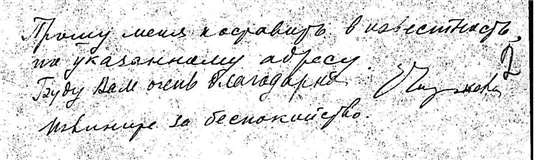 Прошу меня поставить в известность
по указанному адресу.
Буду Вам очень благодарна
Извините за беспокойство.